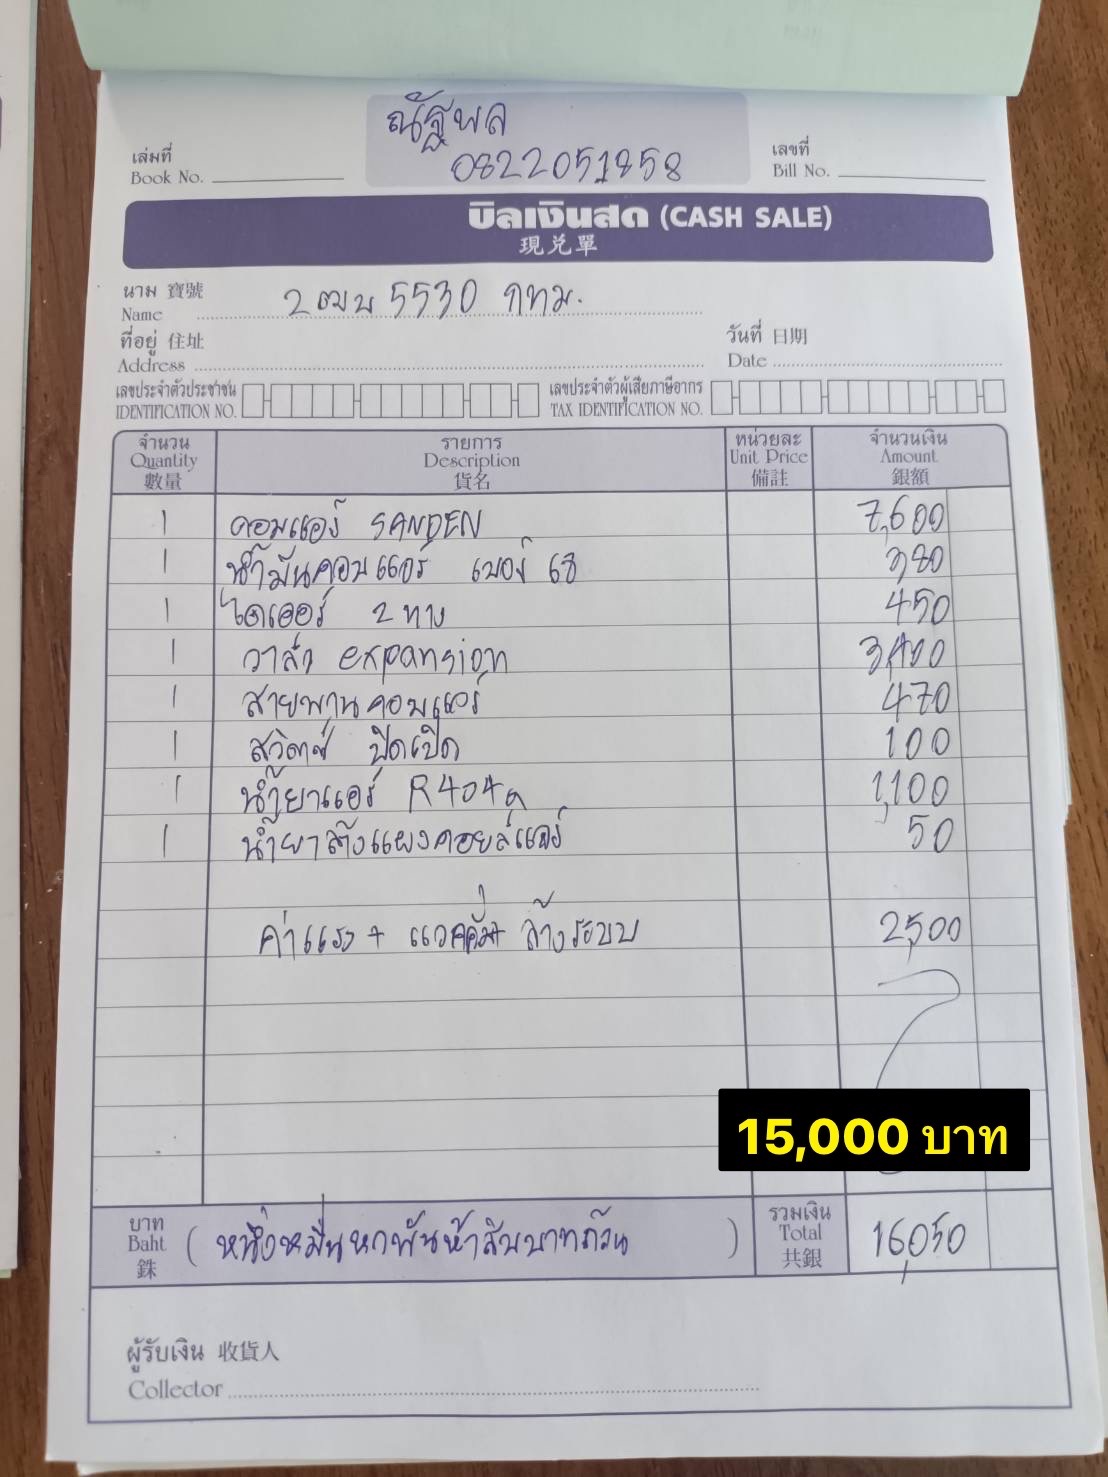 ณัฐพล
0822051858
เล่มที่
Book No.
เลขที่
Bill No.
บิลเงินสด (CASH SALE)
現兌單
นาม 寶號
Name
2ฒน 5530 กทม.
ที่อยู่ 住址
Address
วันที่ 日期
Date
เลขประจำตัวประชาชน
IDENTIFICATION NO.
เลขประจำตัวผู้เสียภาษีอากร
TAX IDENTIFICATION NO.
จำนวน Quantity 數量 รายการ Description 貨名 หน่วยละ Unit Price 備註 จำนวนเงิน Amount 銀額
1 คอมแอร์ SANDEN 7,600
1 น้ำมันคอมแอร์ เบอร์ 68 380
1 ไดเออร์ 2 ทาง 450
1 วาล์ว expansion 3,400
1 สายพานคอมแอร์ 470
1 สวิตซ์ ปิดเปิด 100
1 น้ำยาแอร์ R404a 1,100
1 น้ำยาล้างแผงคอยล์แอร์ 50
ค่าแรง + แวคคั่ม + ล้างระบบ 2,500
15,000 บาท
บาท Baht 銖 (หนึ่งหมื่นหกพันห้าสิบบาทถ้วน) รวมเงิน Total 共銀 16,050
ผู้รับเงิน 收貨人
Collector